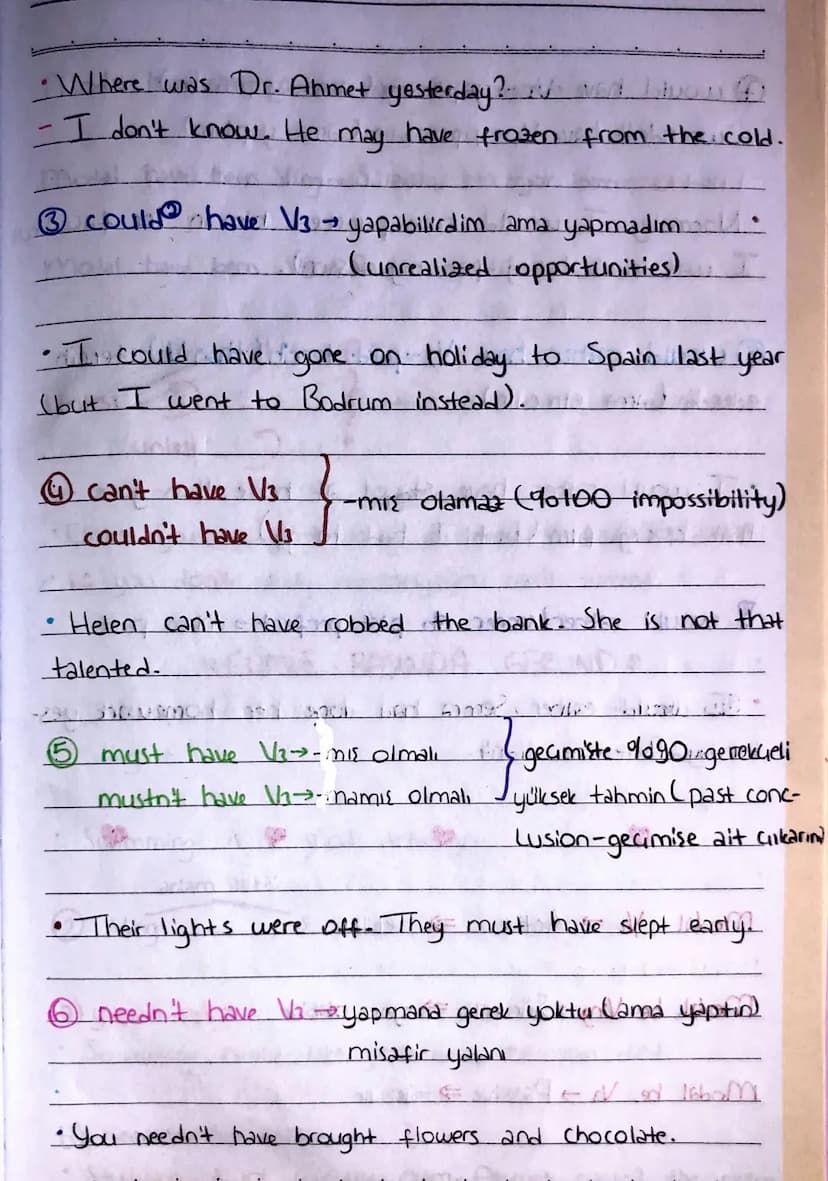 • Where was Dr. Ahmet yesterday?
- I don't know. He may have frozen from the cold.
③ could have V3 → yapabilirdim ama yapmadım
(unrealized opportunities)
• I could have gone on holiday to Spain last year
(but I went to Bodrum instead).
④ can't have V3 } -mış olamaz (%100 impossibility)
couldn't have V3
• Helen can't have robbed the bank. She is not that
talented.
⑤ must have V3 → -mış olmalı } geçmişte %90 gerekçeli
mustn't have V3 → -mamış olmalı yüksek tahmin (past conc-
lusion-geçmişe ait çıkarım)
• Their lights were off. They must have slept early.
⑥ needn't have V3 → yapmana gerek yoktu (ama yaptın)
misafir yalanı
• You needn't have brought flowers and chocolate.